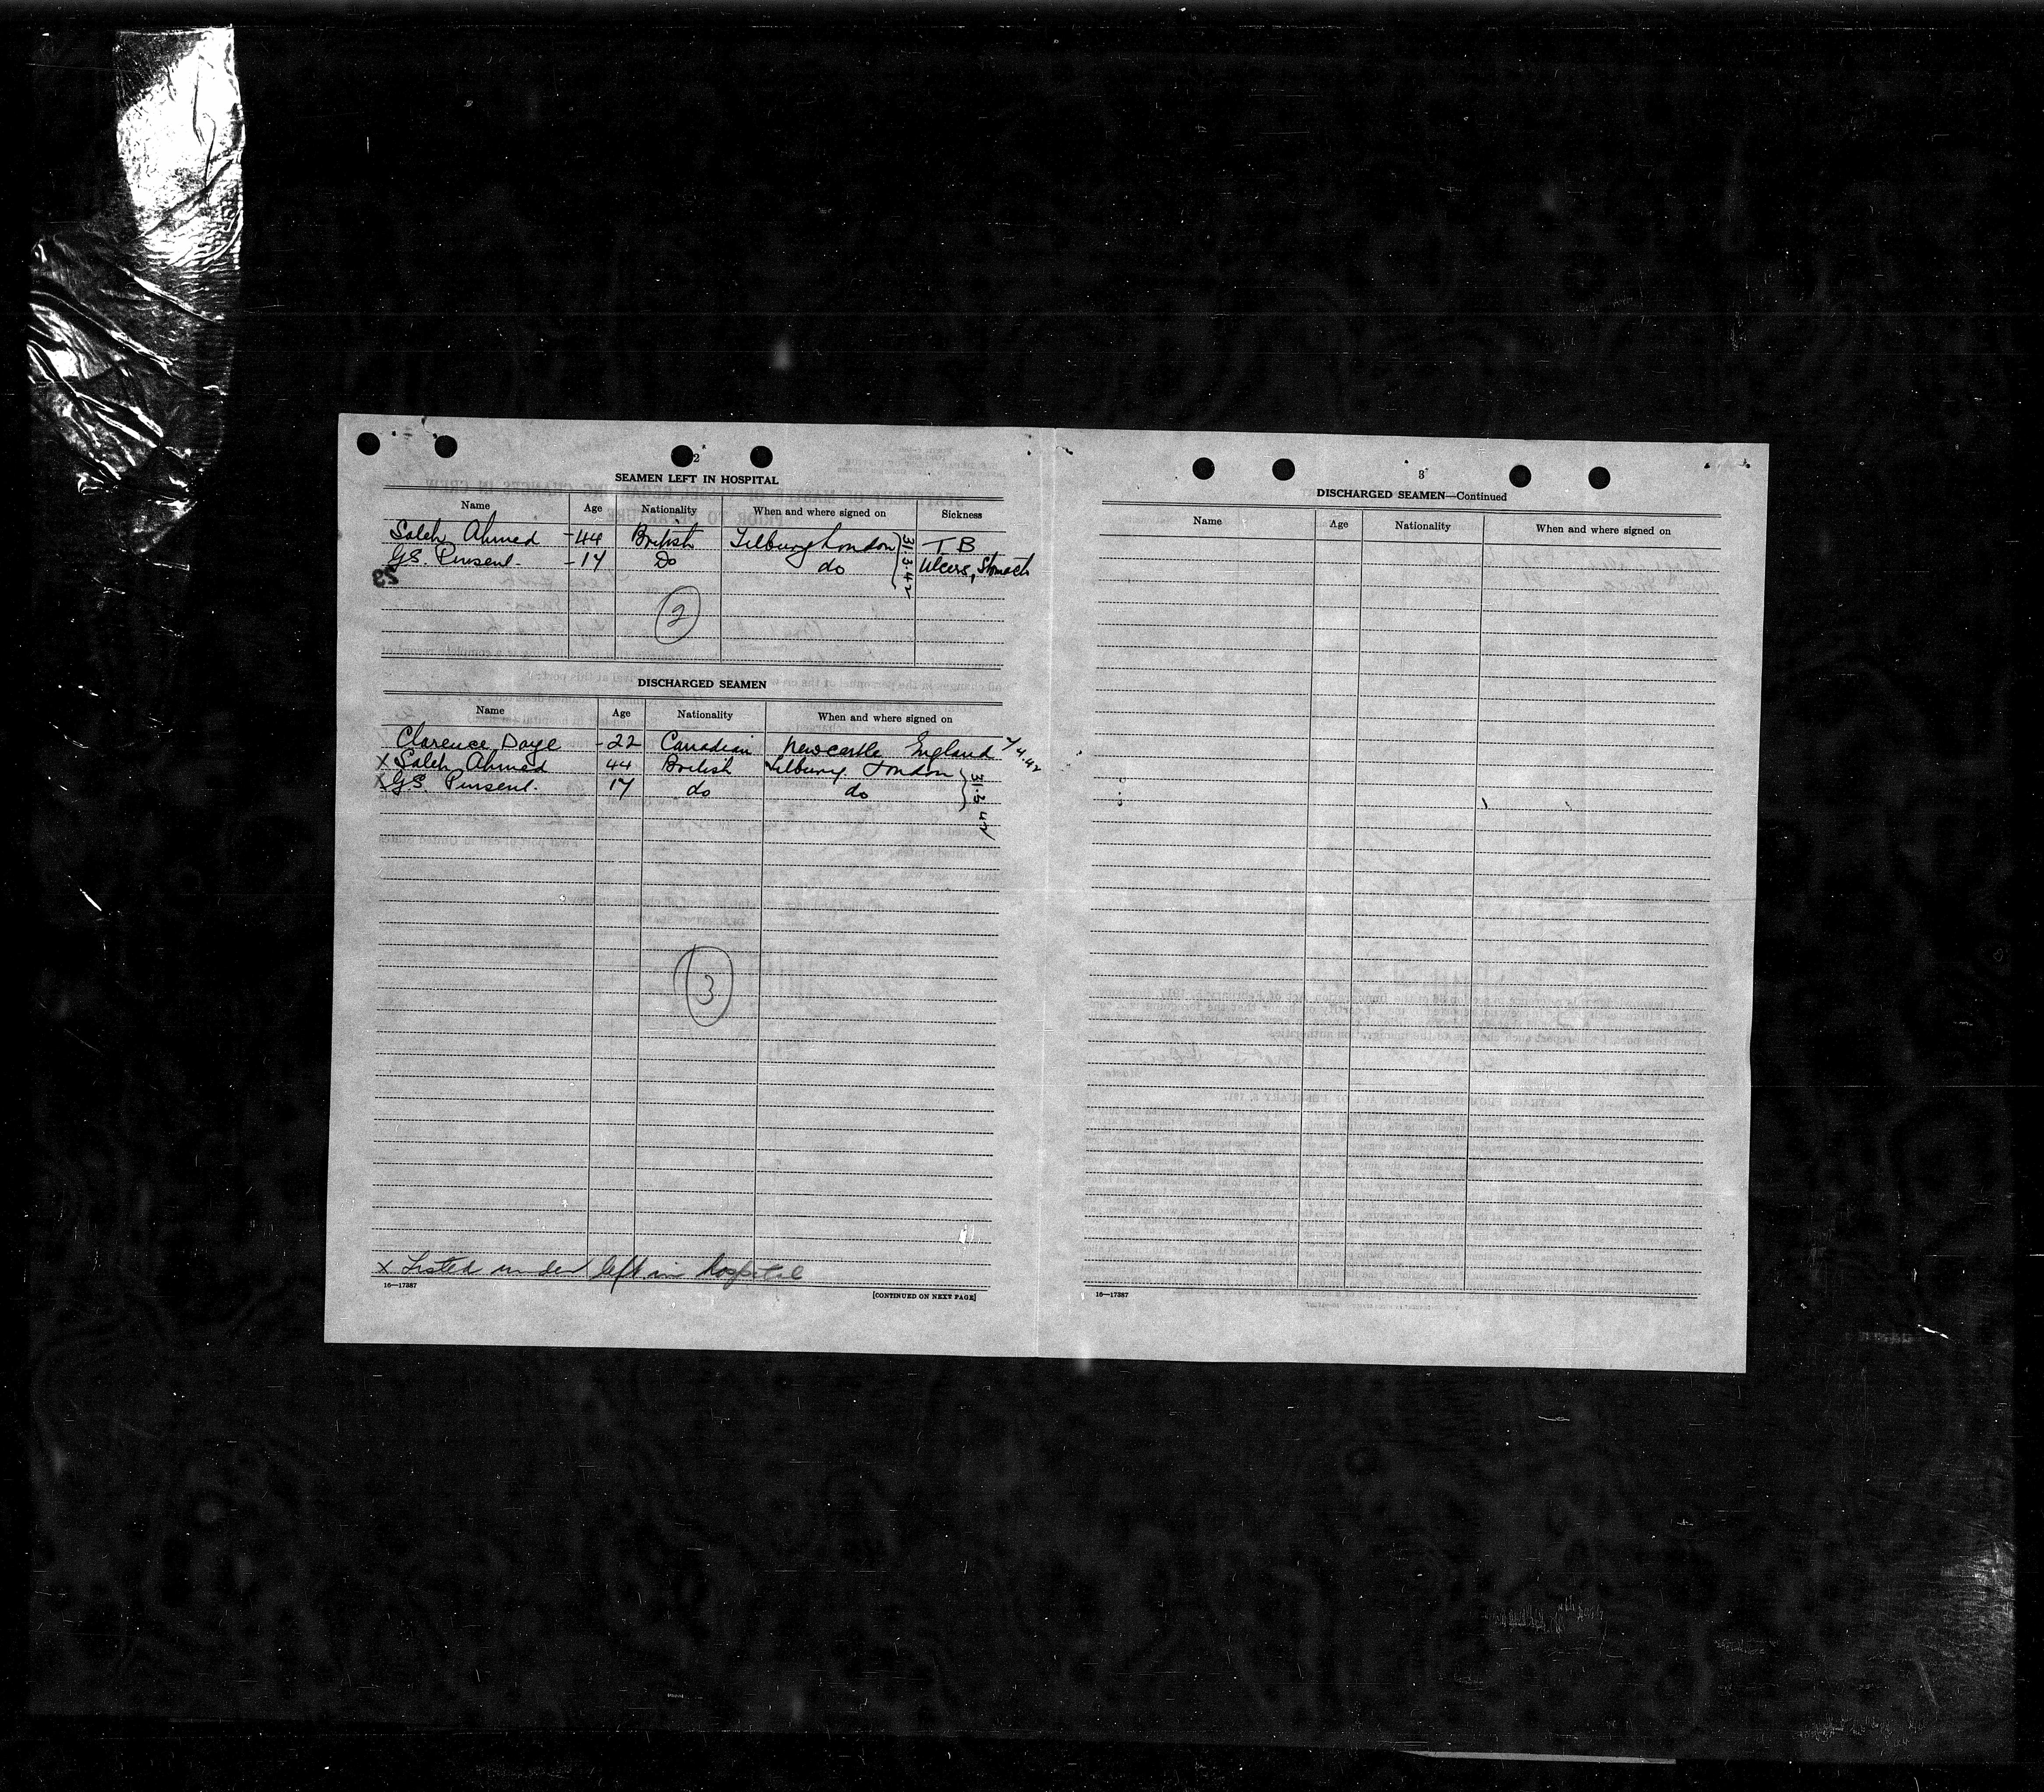 2
SEAMEN LEFT IN HOSPITAL
Name Age Nationality When and where signed on Sickness
Saleh Ahmed -44 British Tilbury London 31.3.42 T B
G.S. Pinsent. -17 Do do Ulcers, Stomach
29
2
DISCHARGED SEAMEN
Name Age Nationality When and where signed on
Clarence Daye -22 Canadian Newcastle England 4.42
X Saleh Ahmed 44 British Tilbury London 31.3.42
X G.S. Pinsent. 17 do do
3
x Listed under left in hospital
16—17387
[CONTINUED ON NEXT PAGE]
3
DISCHARGED SEAMEN—Continued
Name Age Nationality When and where signed on
16—17387